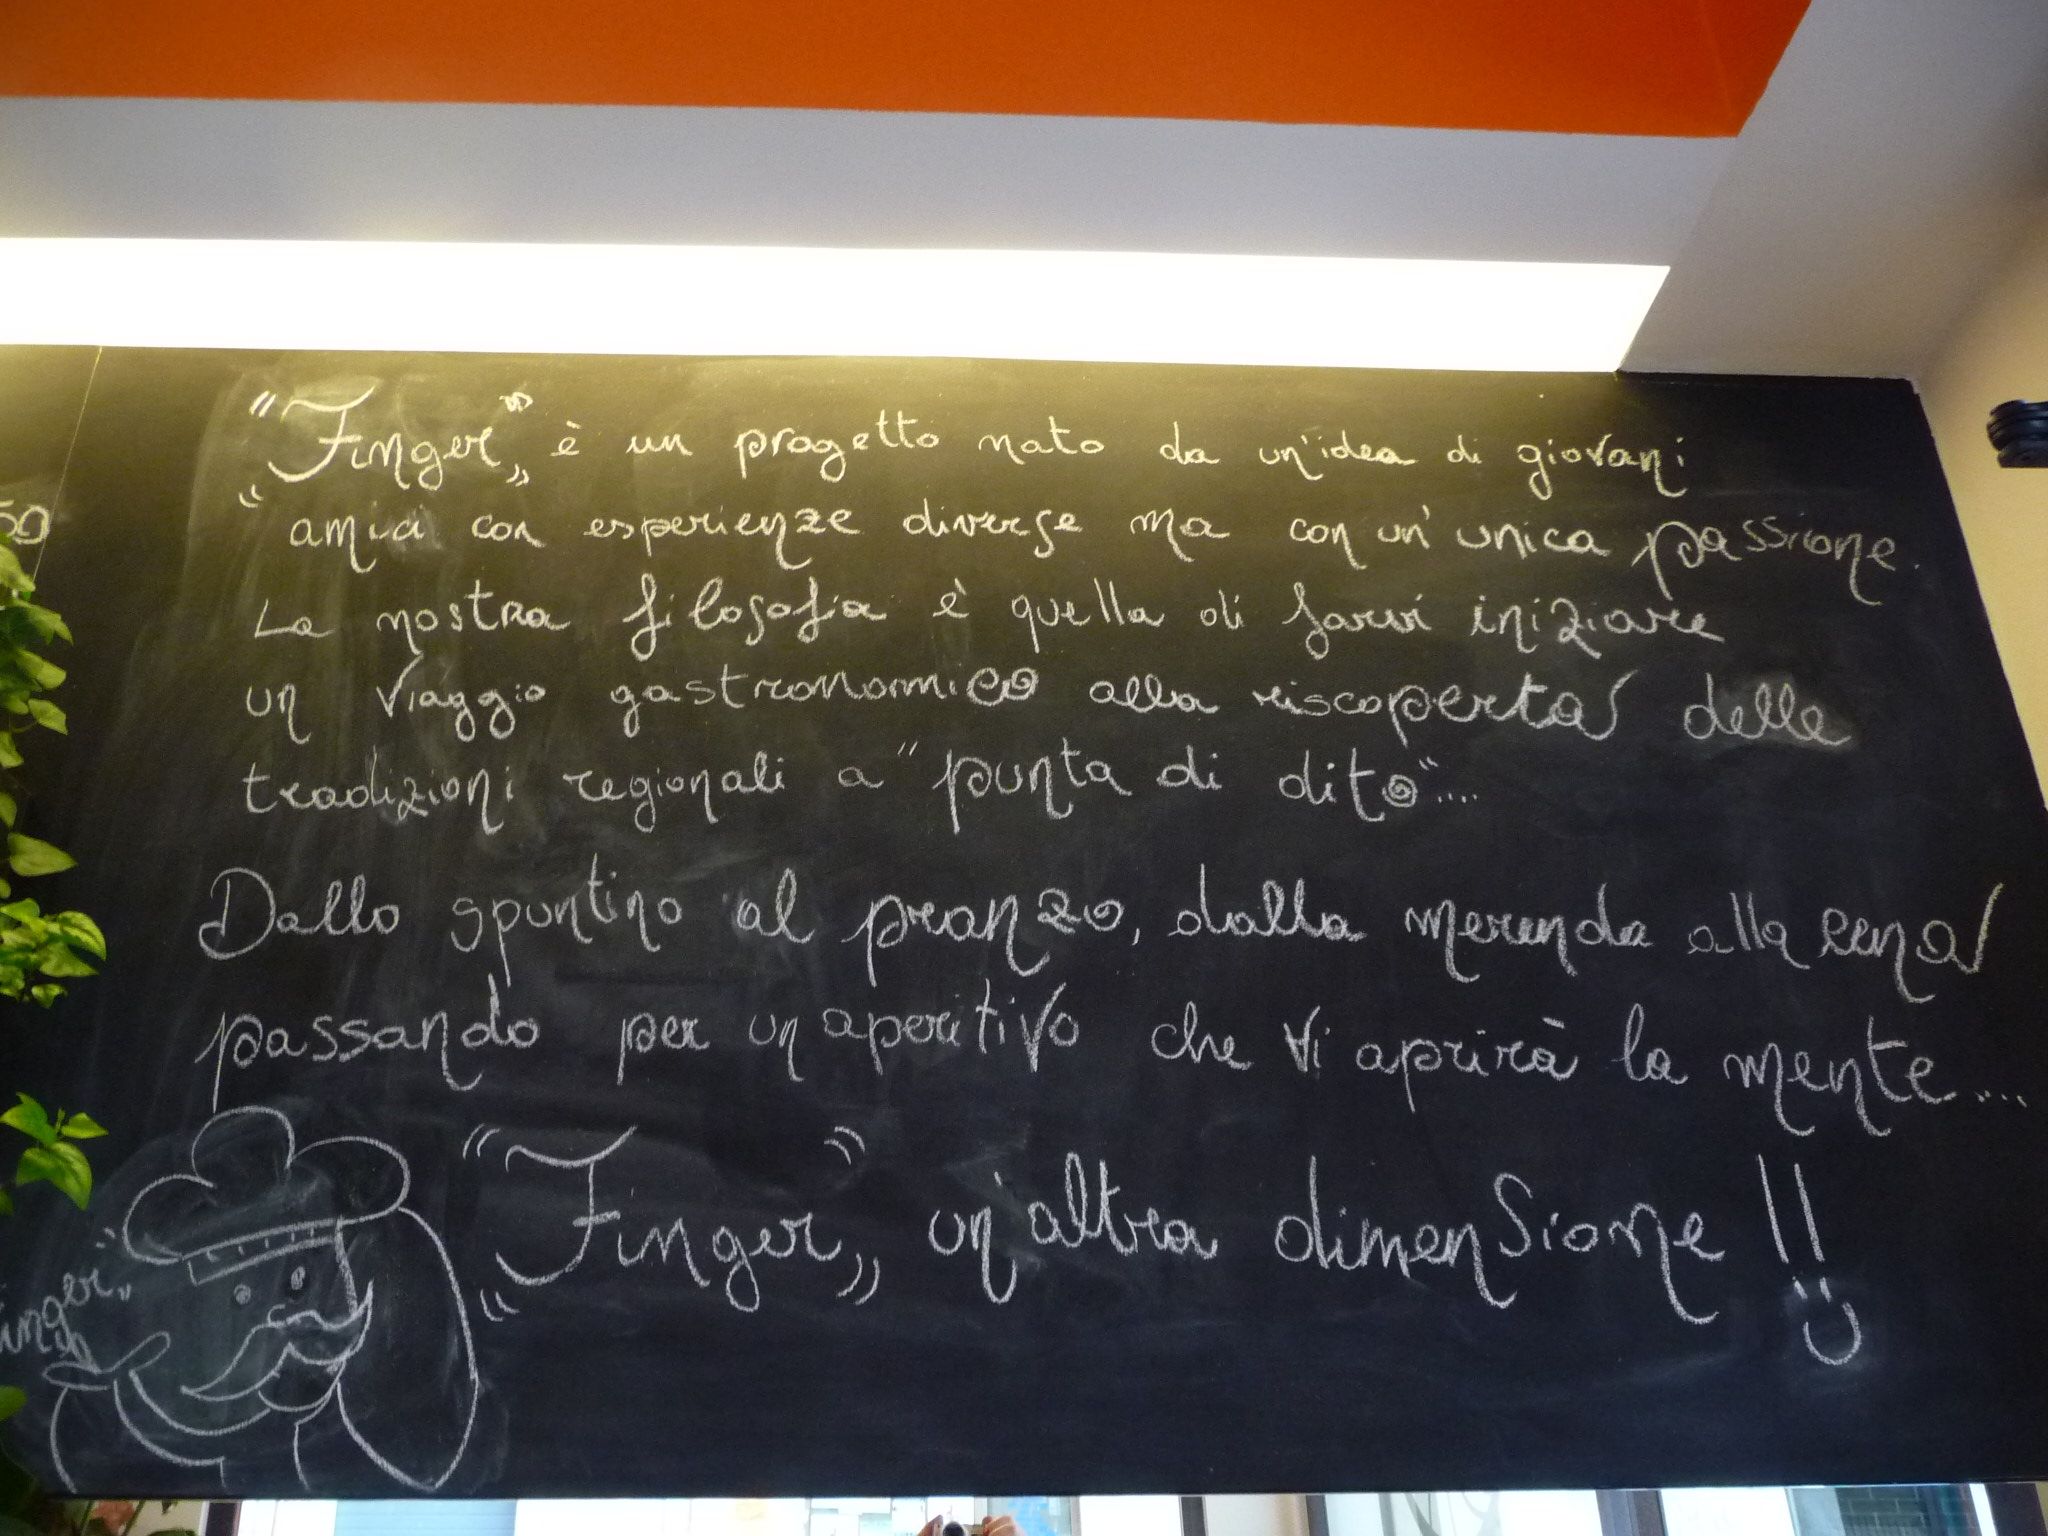 "Finger" è un progetto nato da un'idea di giovani
amici con esperienze diverse ma con un'unica passione.
La nostra filosofia è quella di farvi iniziare
un viaggio gastronomico alla riscoperta delle
tradizioni regionali a "punta di dito"....
Dallo spuntino al pranzo, dalla merenda alla cena
passando per un aperitivo che vi aprirà la mente....
"Finger" un'altra dimensione !!
:)
50